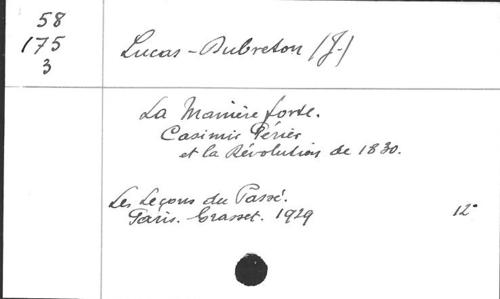 58
175
3
Lucas-Dubreton (J.)
La Manière forte.
Casimir Périer
et la Révolution de 1830.
Les Leçons du Passé.
Paris. Grasset. 1929 12°